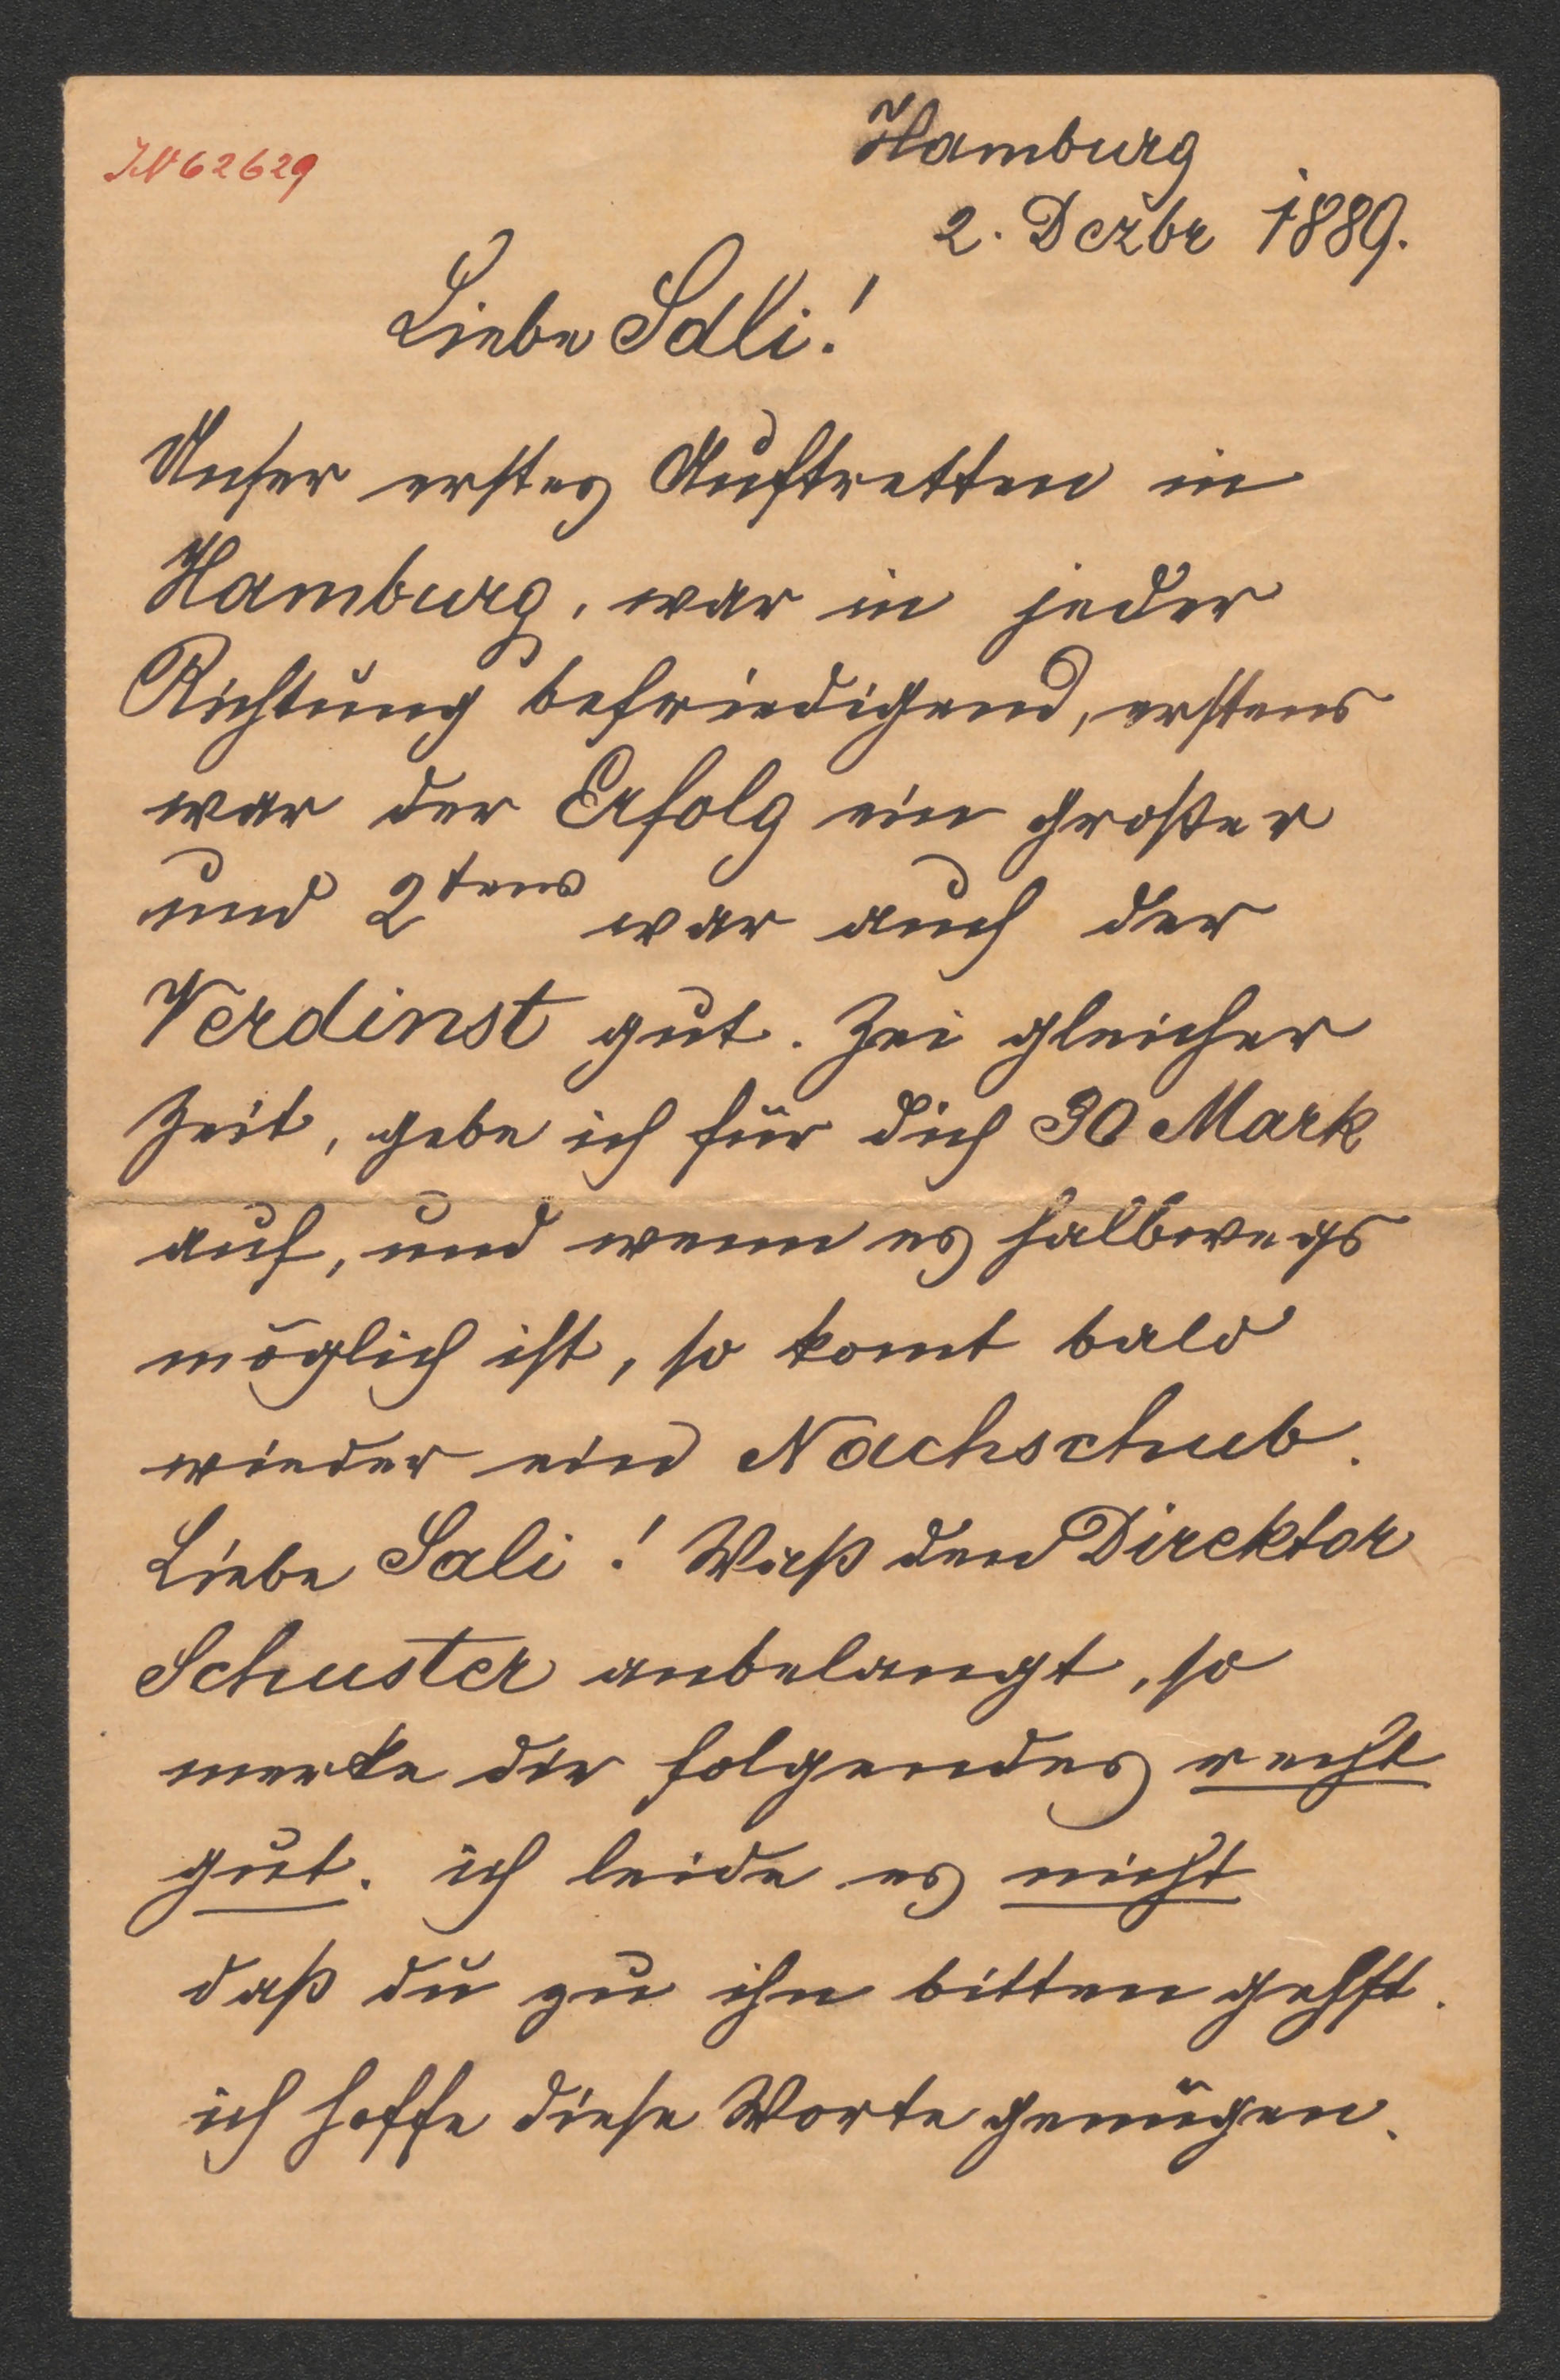 IN 62629
Hamburg
2. Dezbr 1889.
Liebe Sali!
Unser erstes Auftretten in
Hamburg, war in jeder
Richtung befriedigend, erstens
war der Erfolg ein großer
und 2tens war auch der
Verdinst gut. Zei gleicher
Zeit, gebe ich für dich 30 Mark
auf, und wenn es halbwegs
möglich ist, so komt bald
wieder ein Nachschub.
Liebe Sali! Waß den Direktor
Schuster anbelangt, so
merke dir folgendes recht
gut. ich leide es nicht
daß du zu ihn bitten gehst.
ich hoffe diese Worte genügen.